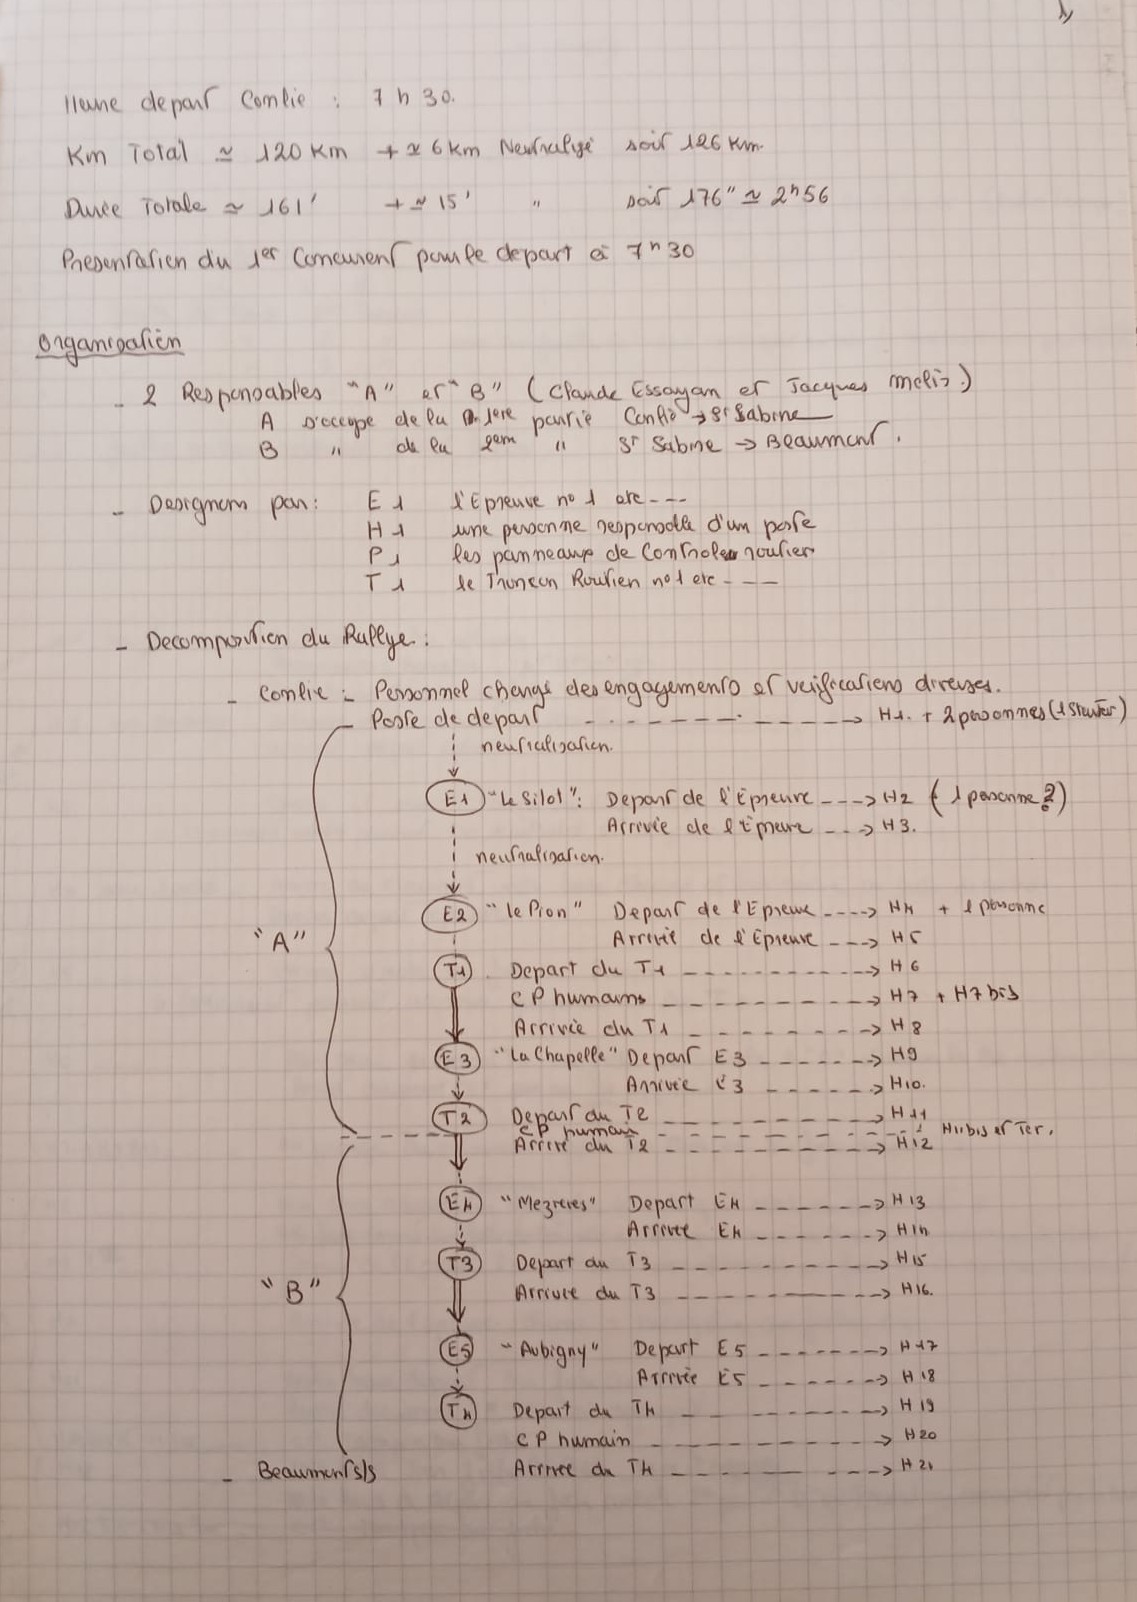 1)
Heure depart Conlie : 7 h 30.
Km Total ≃ 120 Km + ≃ 6 km Neutralisé soit 126 Km.
Durée Totale ≃ 161' + ≃ 15' " soit 176" ≃ 2h56
Presentation du 1er Concurent pour le depart à 7h30
Organisation
- 2 Responsables "A" et "B" (Claude Essayan et Jacques Melis.)
A s'occupe de la 1ere partie Conlie → St Sabine
B " de la 2em " St Sabine → Beaumont.
- Designons par : E1 l'Epreuve no 1 etc ---
H1 une personne responsable d'un poste
P1 les panneaux de Controles routier
T1 le Troncon Routier no 1 etc ---
- Decomposition du Rallye :
- Conlie : - Personnel chargé des engagements et verifications diverses.
- Poste de depart ----------> H1. + 2 personnes (1 Starter)
neutralisation.
E1 "Le Silot" : Depart de l'Epreuve ---> H2 (+ 1 personne ?)
Arrivée de l'Epreuve ---> H3.
neutralisation.
E2 "le Pion" Depart de l'Epreuve ----> H4 + 1 personne
Arrivée de l'Epreuve ---> H5
"A"
T1 Depart du T1 ----------> H6
CP humains ----------> H7 + H7 bis
Arrivée du T1 ---------> H8
E3 "La Chapelle" Depart E3 ------> H9
Arrivée E3 ------> H10.
T2 Depart du T2 ----------> H11
CP humain ---------- H11 bis et Ter.
Arrivé du T2 ----------> H12
E4 "Mezieres" Depart E4 ------> H13
Arrivée E4 ------> H14
T3 Depart du T3 ---------> H15
"B" Arrivée du T3 ---------> H16.
E5 "Aubigny" Depart E5 -------> H17
Arrivée E5 ------> H18
T4 Depart du T4 ---------> H19
CP humain ----------> H20
- Beaumont s/s Arrivée du T4 ---------> H21